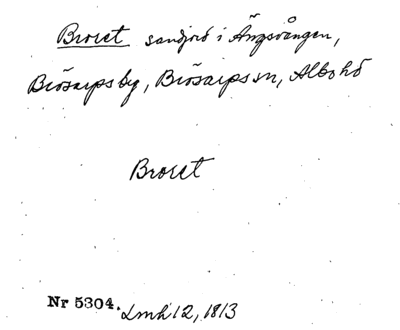 Broret sandjord i Ängsvången,
Brösarps by, Brösarps sn, Albo hd
Broret
Nr 5304. Lmh 12, 1813